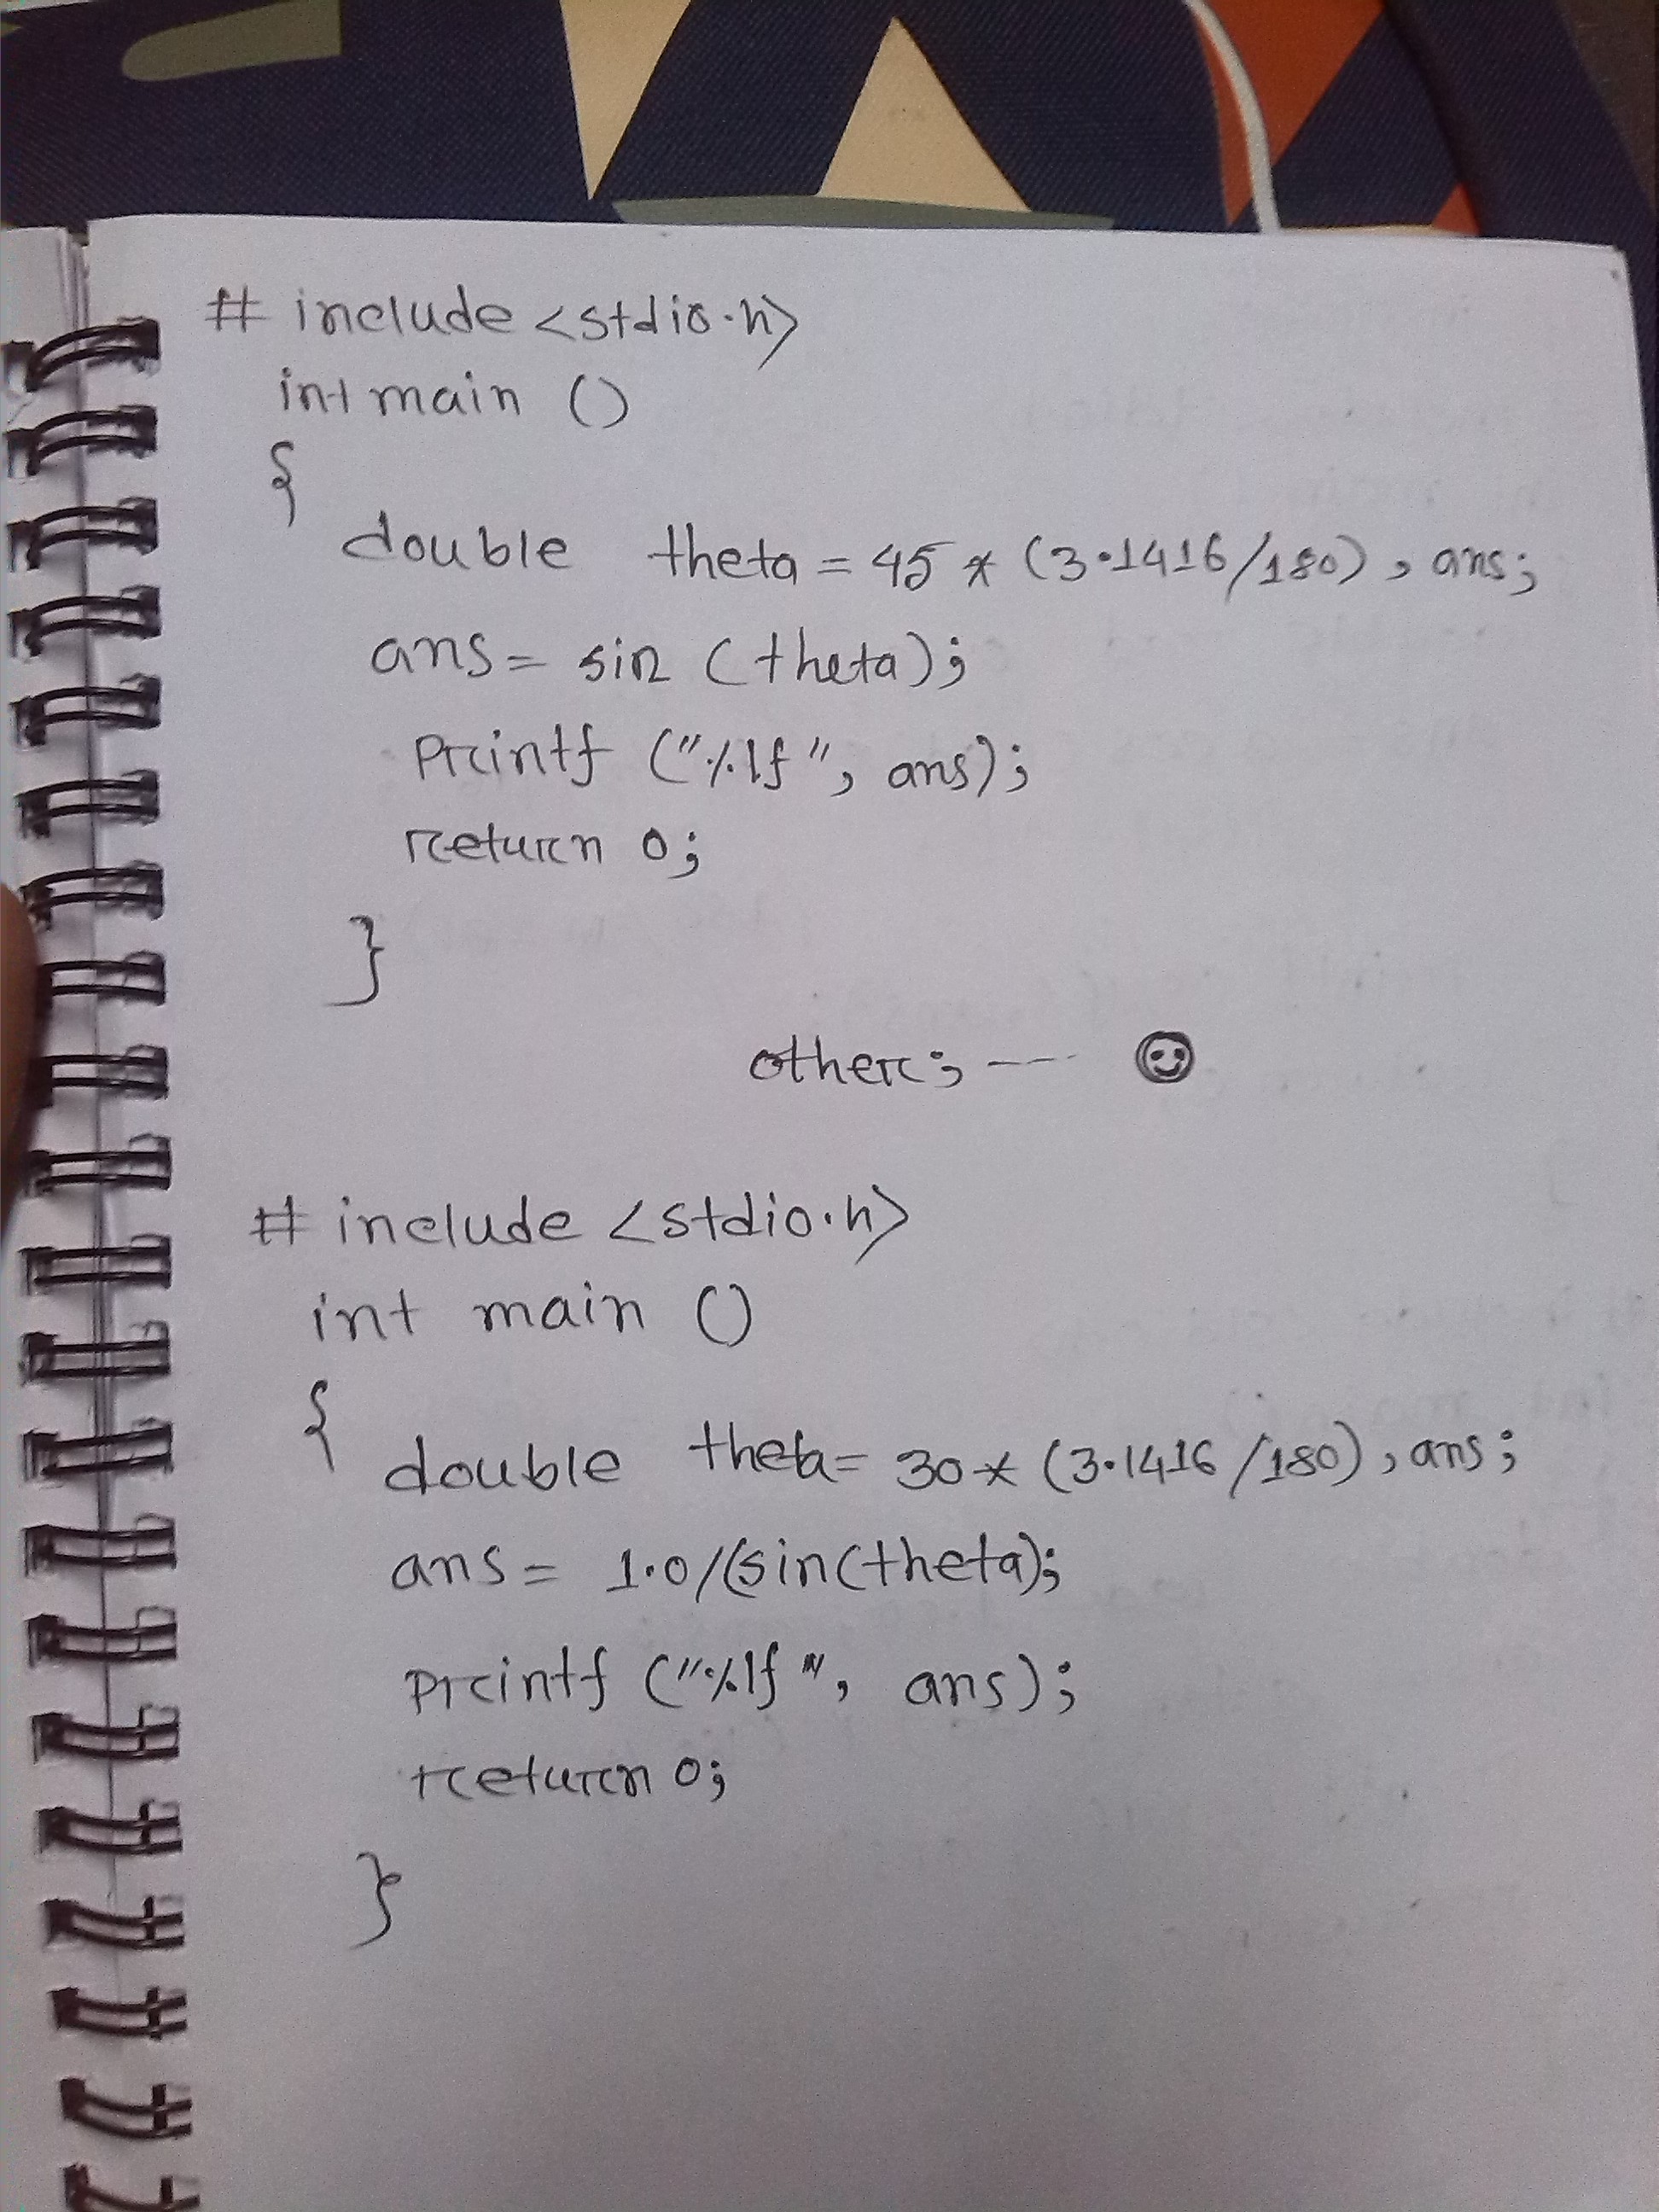 # include <stdio.h>
int main ()
{
double theta = 45 * (3.1416/180), ans;
ans = sin (theta);
Printf ("%lf", ans);
return 0;
}
other; --- ☺
# include <stdio.h>
int main ()
{ double theta = 30 * (3.1416/180), ans;
ans = 1.0/(sin(theta);
printf ("%lf", ans);
return 0;
}